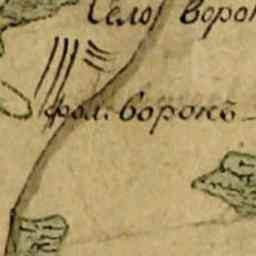 Село Ворон
фол. Ворокъ